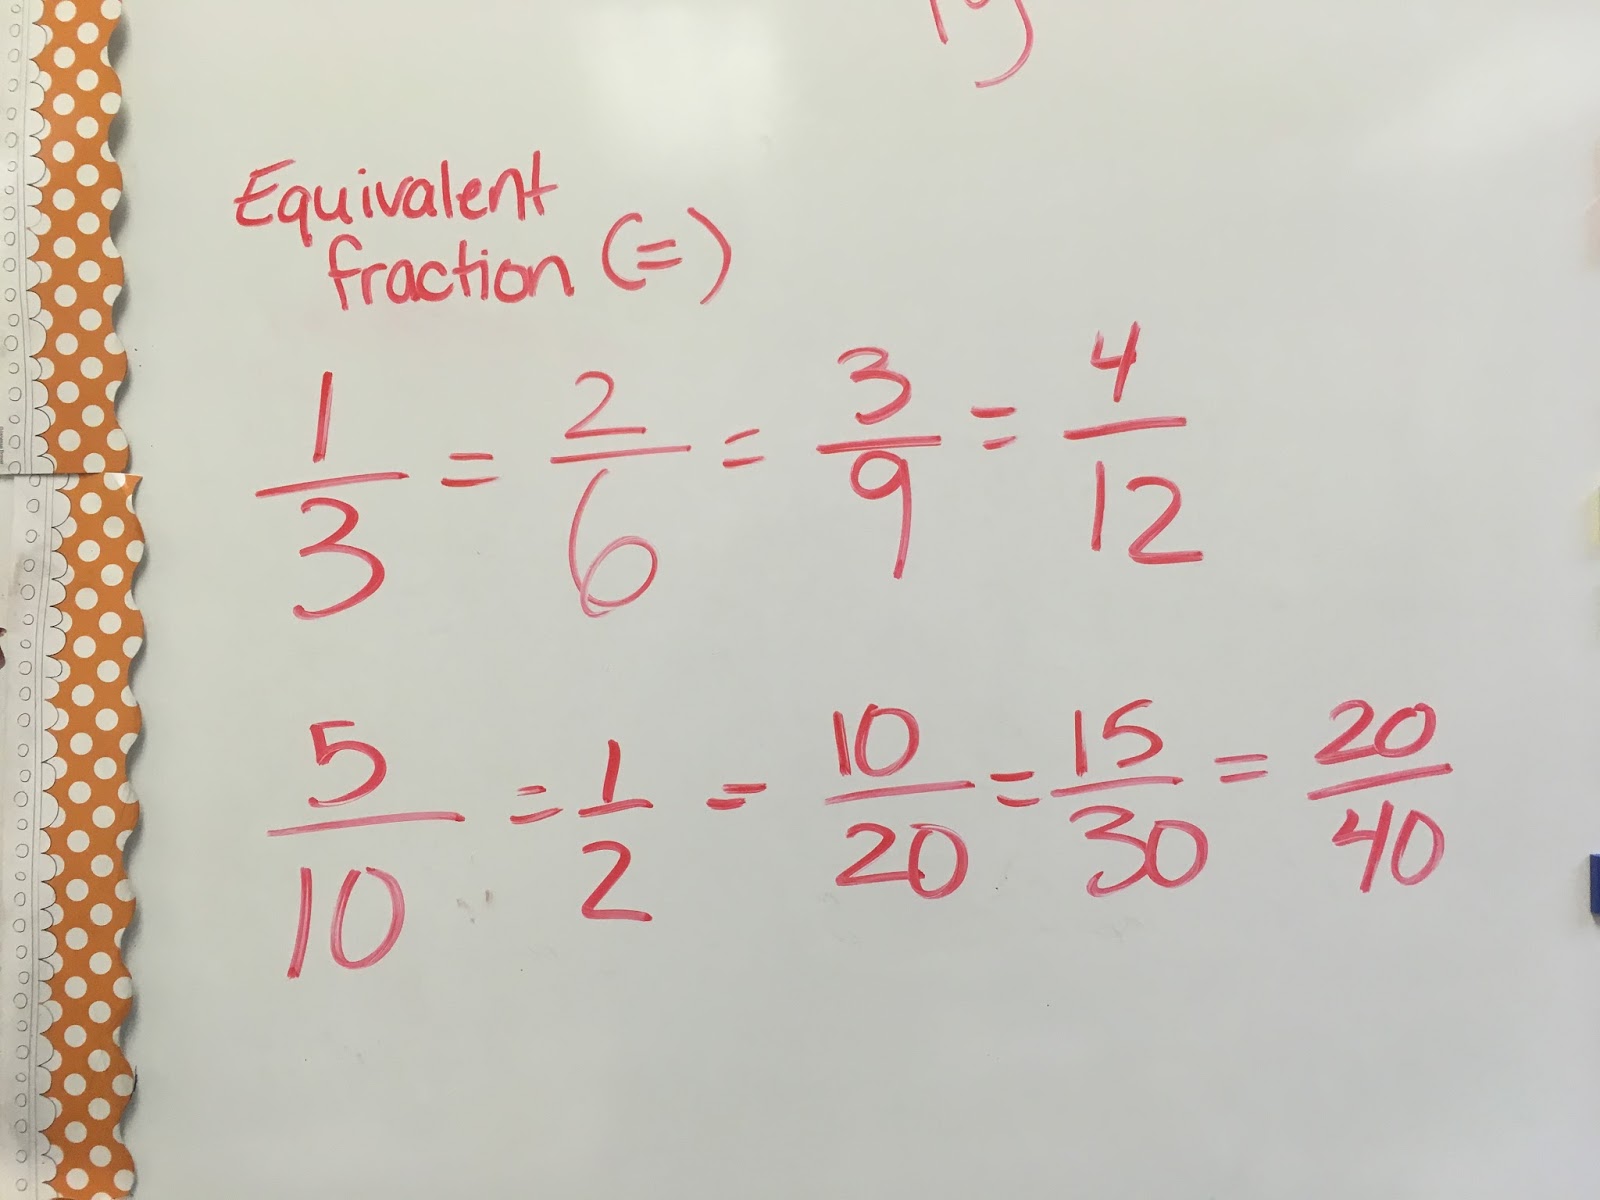 Equivalent
fraction (=)
1/3 = 2/6 = 3/9 = 4/12
5/10 = 1/2 = 10/20 = 15/30 = 20/40